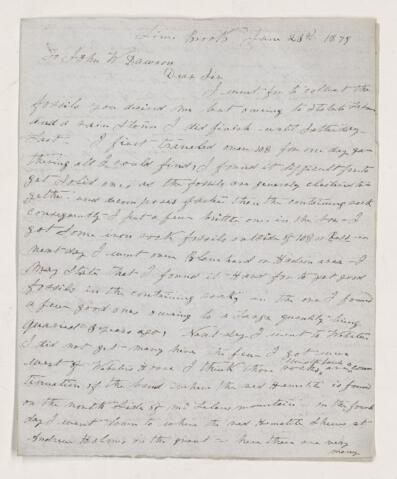 Time Brook Jan 28th 1879
To John W Dawson
Dear Sir
I went for to collect the
fossils you desired me but owing to State Labor
and a rain storm I did finish until Satterday
last. I first traveled on 108 for one day ga-
thering all I could find, I found it difficult for to
get solid ones, as the fossils are generely clustered to-
gether and decomposes faster than the containing rock
consequently I put a few brittle ones in the box. I
got some iron rock fossils outside of 108 or East
next day I went over Blanchard on Hadin area I
May State that I found it Hard for to get good
fossils in the containing rocks, in the one I found
a few good ones owing to a large quantity being
quarried 8 years ago. Next day I went to Websters
I did not get many here the few I got were
west of Websters House I think those rocks are a con-
tinuation of the band where the red Hematite is found
on the north side of Mc Lelans mountain in the fourth
day I went down to where the red Hematite shews at
Andrew in the — here there are very
many